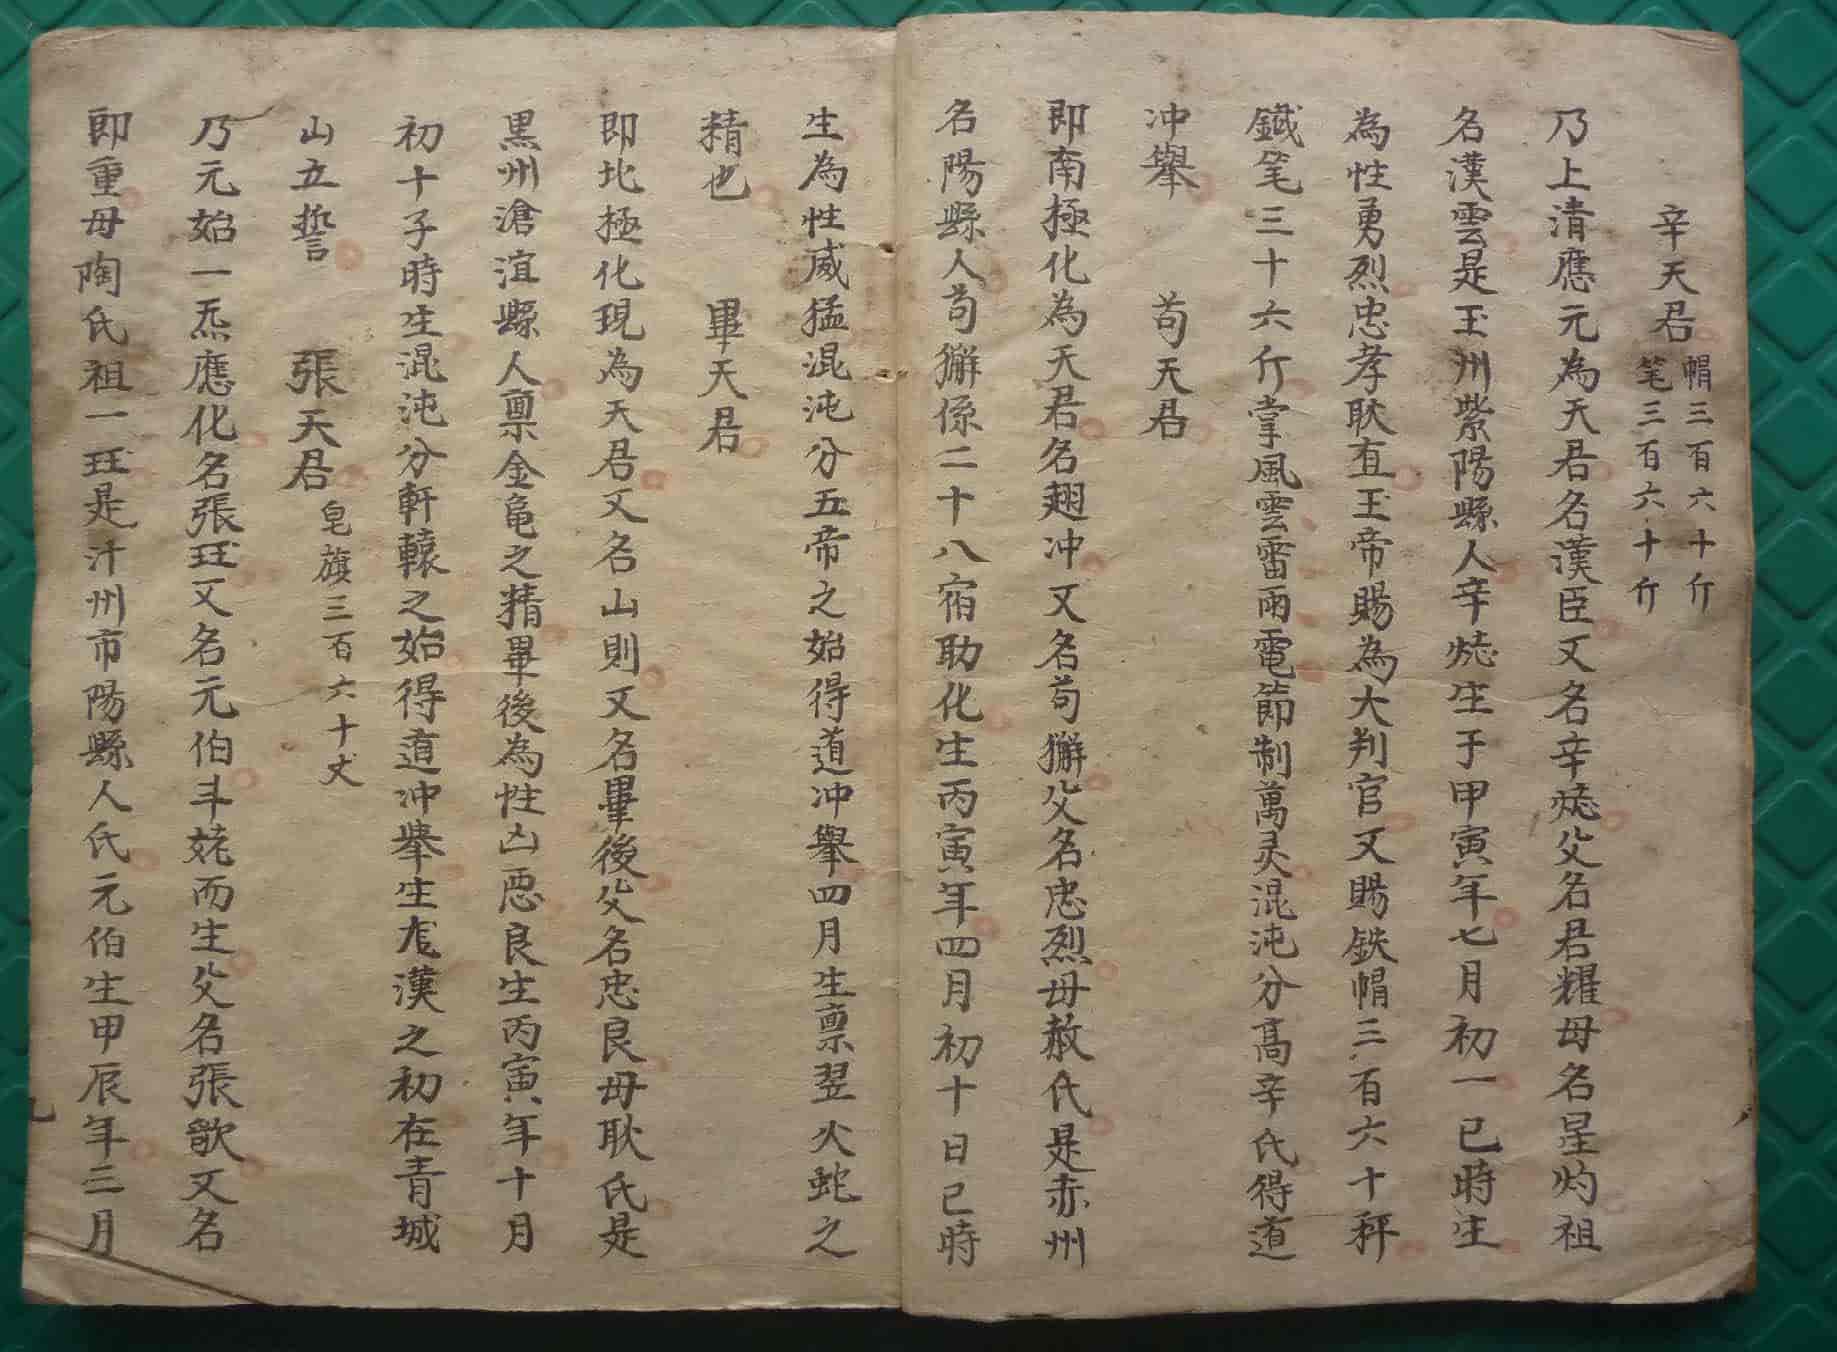 辛天君 帽三百六十斤 笔三百六十斤
乃上清應元為天君名漢臣又名辛㷟父名君耀母名星灼祖
名漢雲是玉州紫陽縣人辛㷟生于甲寅年七月初一巳時生
為性勇烈忠孝耿直玉帝賜為大判官又賜鉄帽三百六十秤
鐡笔三十六斤掌風雲雷雨電節制萬灵混沌分高辛氏得道
冲舉 苟天君
即南極化為天君名翅冲又名苟獬父名忠烈母赦氏是赤州
名陽縣人苟獬係二十八宿助化生丙寅年四月初十日巳時
生為性威猛混沌分五帝之始得道冲舉四月生禀翌火蛇之
精也 畢天君
即北極化現為天君又名山則又名畢後父名忠良母耿氏是
黑州滄洰縣人禀金龜之精畢後為性凶恶良生丙寅年十月
初十子時生混沌分軒轅之始得道冲舉生漢之初在青城
山立誓 張天君 皂旗三百六十丈
乃元始一炁應化名張珏又名元伯斗姥而生父名張歆又名
即重母陶氏祖一珏是汁州市陽縣人氏元伯生甲辰年三月